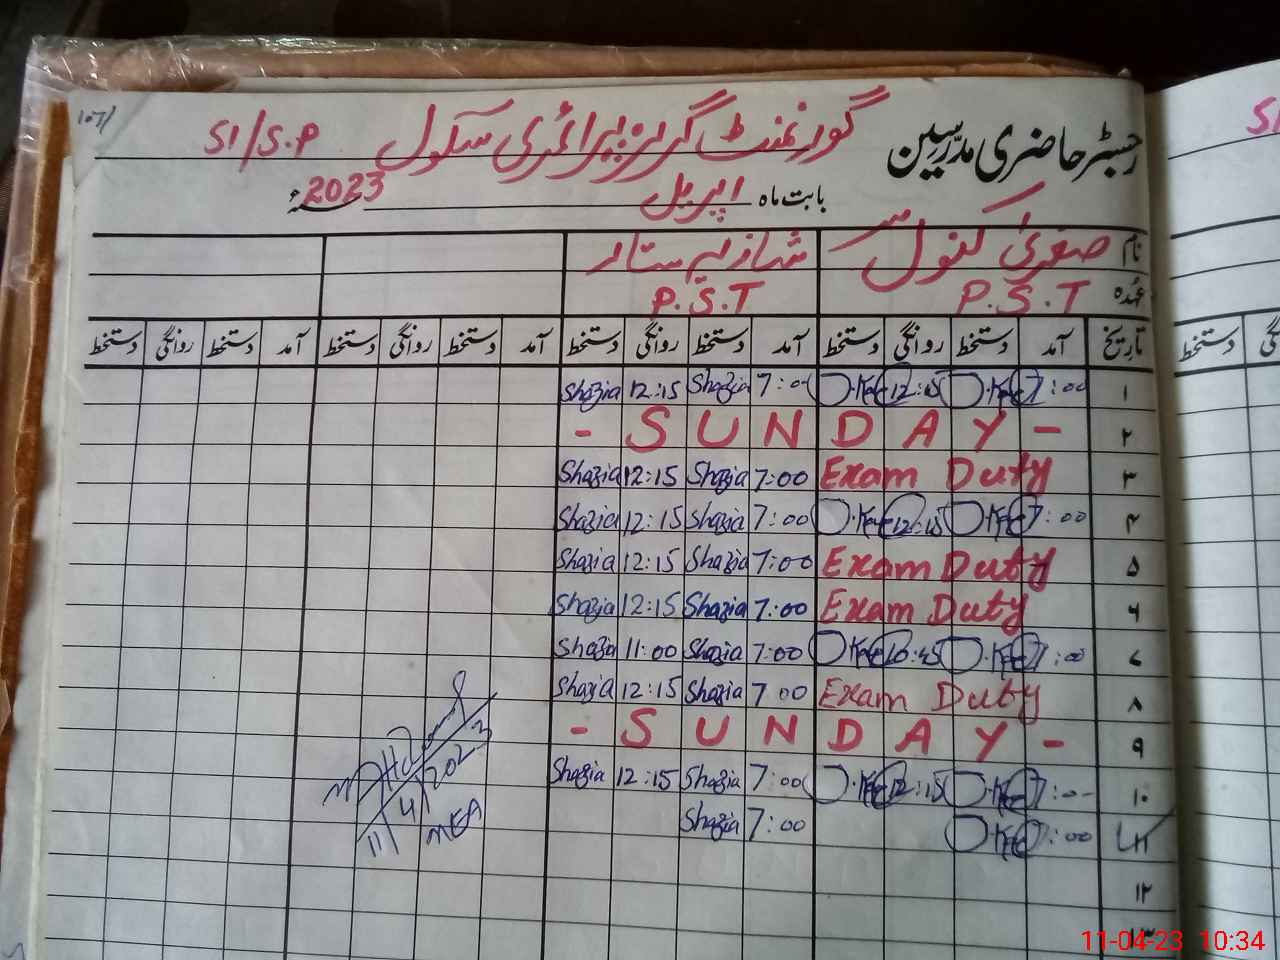 107/
رجسٹر حاضری مدرسین گورنمنٹ گرلز پرائمری سکول 51/S.P
بابت ماہ اپریل 2023ء
نام صغریٰ کنول شازیہ ستار
عہدہ P.S.T P.S.T
تاریخ آمد دستخط روانگی دستخط آمد دستخط روانگی دستخط آمد دستخط روانگی دستخط آمد دستخط روانگی دستخط
۱ 7:00 12:15 7:00 Shazia 12:15 Shazia
۲ - SUNDAY -
۳ Exam Duty 7:00 Shazia 12:15 Shazia
۴ 7:00 12:15 7:00 Shazia 12:15 Shazia
۵ Exam Duty 7:00 Shazia 12:15 Shazia
۶ Exam Duty 7:00 Shazia 12:15 Shazia
۷ 7:00 10:45 7:00 Shazia 11:00 Shazia
۸ Exam Duty 7:00 Shazia 12:15 Shazia
۹ - SUNDAY -
۱۰ 7:00 12:15 7:00 Shazia 12:15 Shazia
۱۱ 7:00 7:00 Shazia
۱۲
۱۳
11/4/2023
MEA
دستخط
11-04-23 10:34